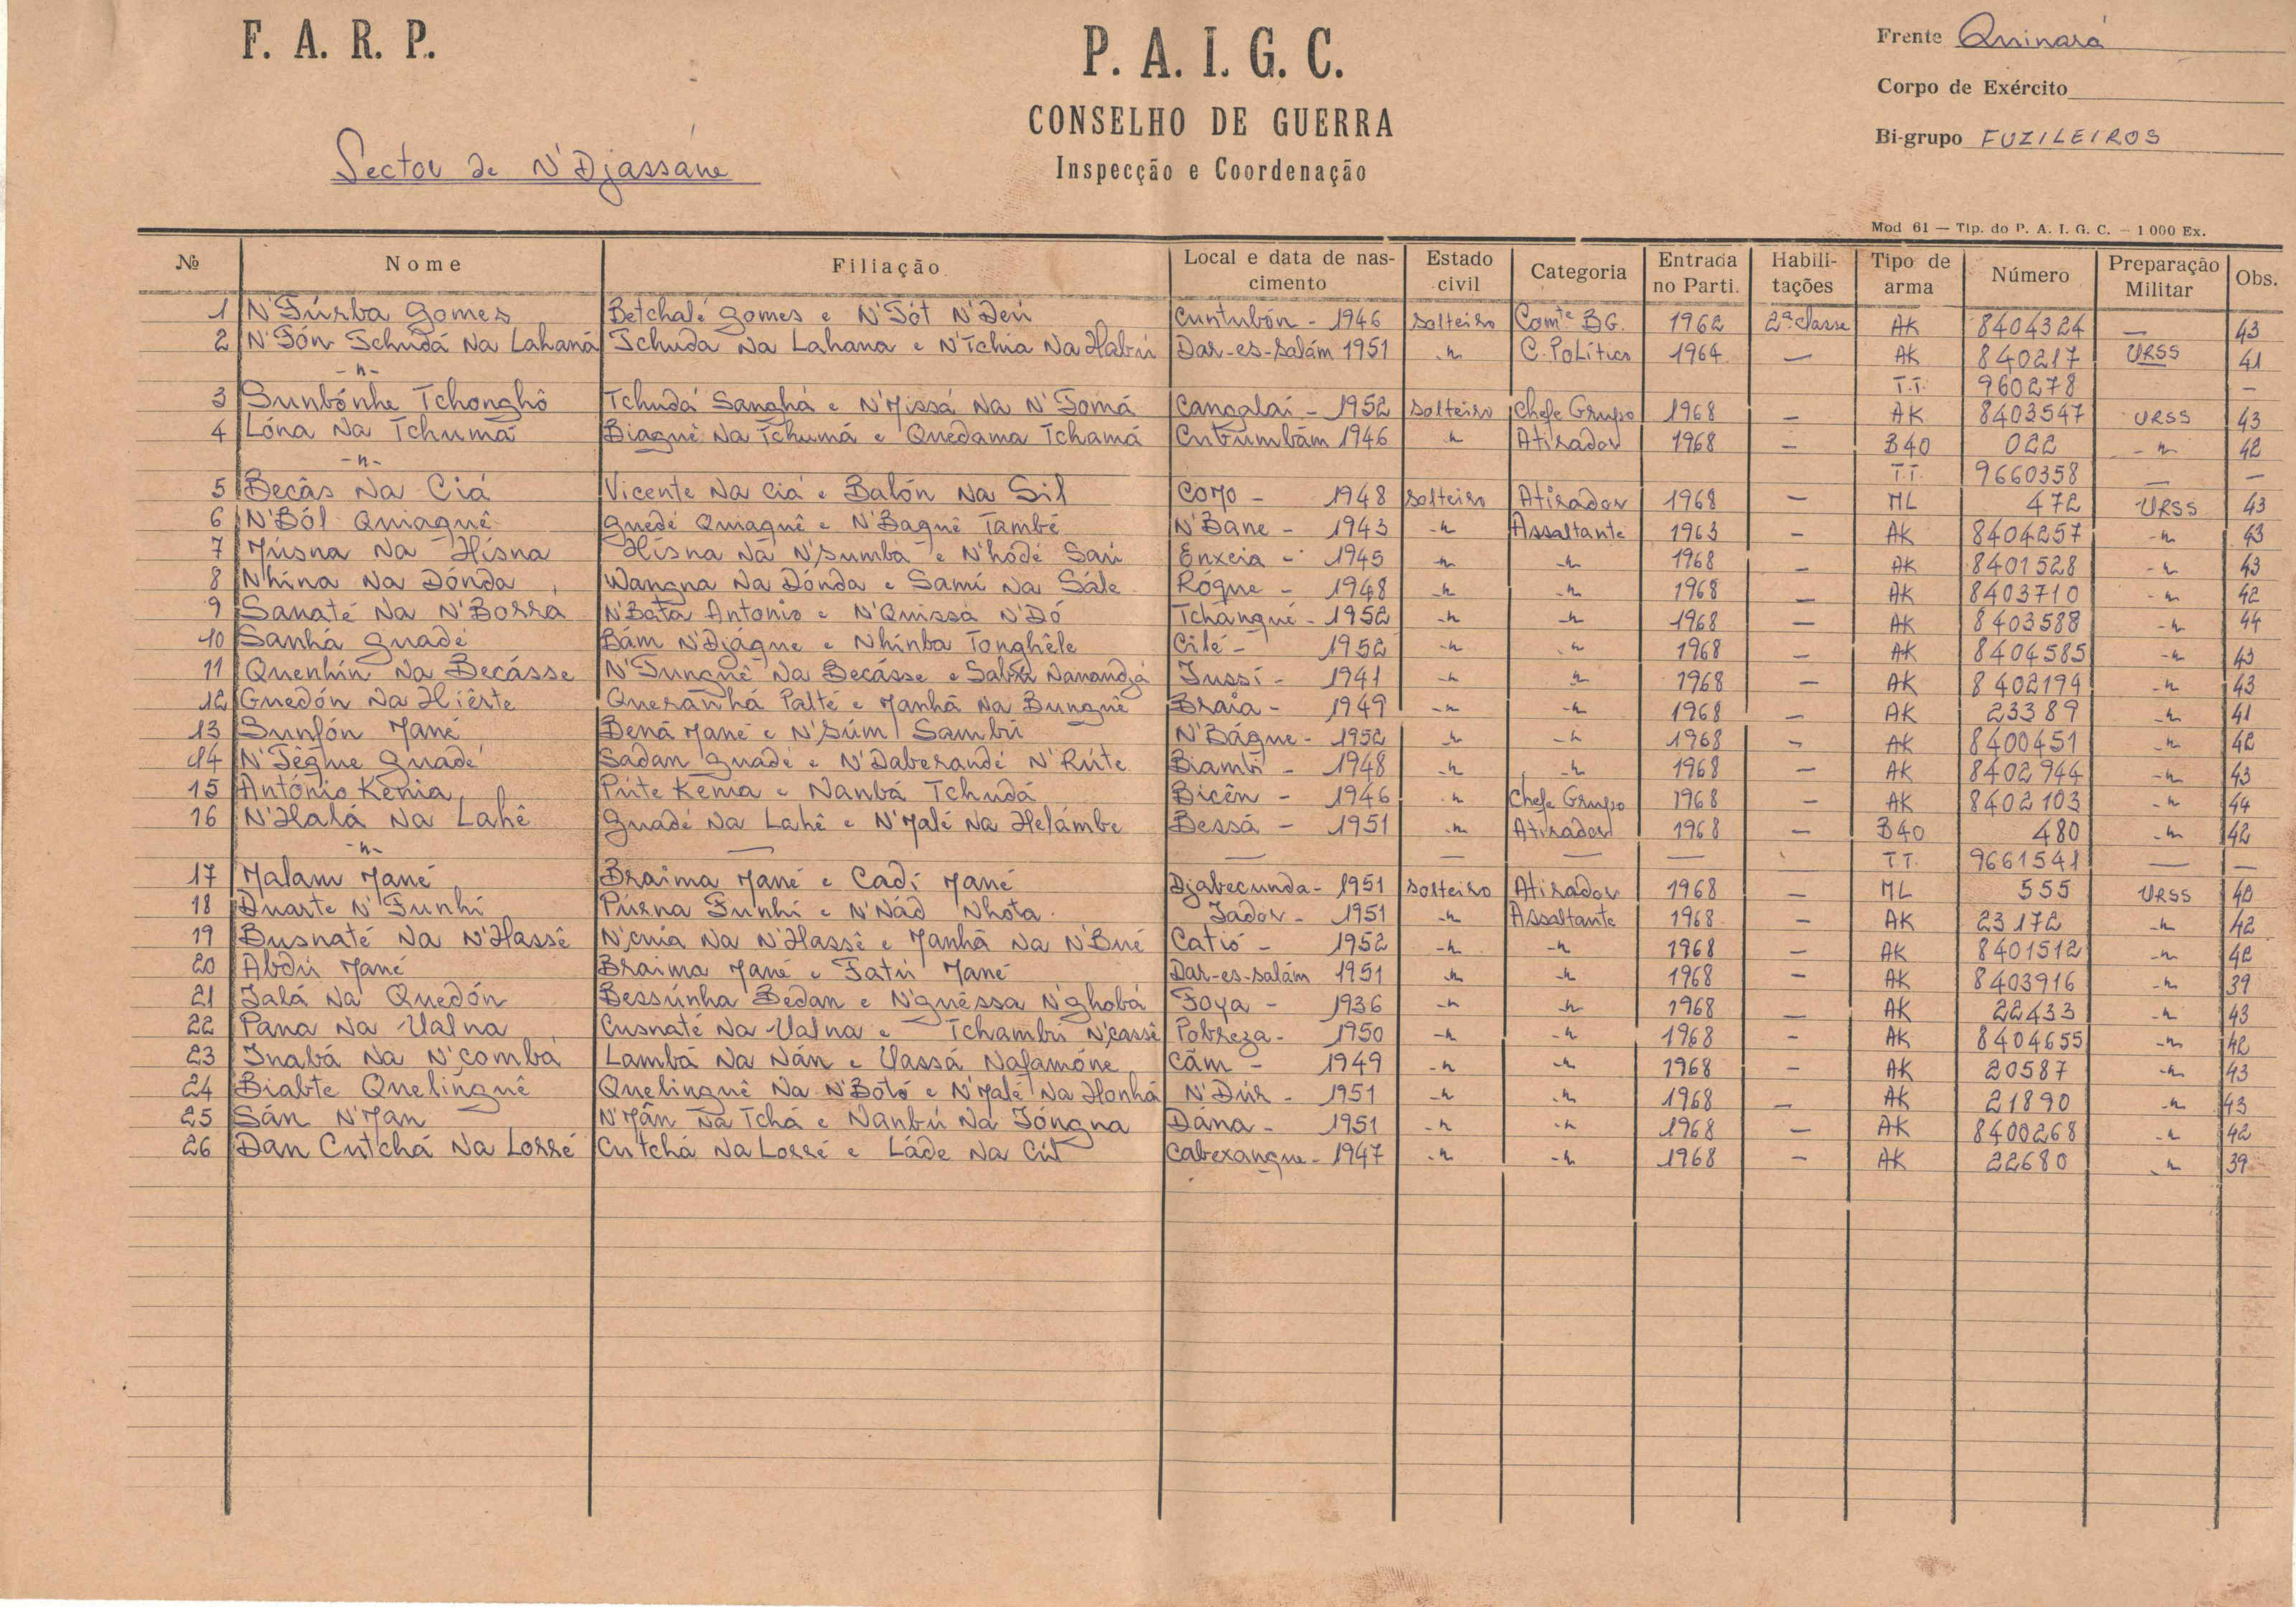 F. A. R. P.
P. A. I. G. C.
CONSELHO DE GUERRA
Inspecção e Coordenação
Frente Quinará
Corpo de Exército
Bi-grupo FUZILEIROS
Sector de N'Djassane
Mod 61 — Tip. do P. A. I. G. C. — 1 000 Ex.
Nº Nome Filiação Local e data de nascimento Estado civil Categoria Entrada no Parti. Habilitações Tipo de arma Número Preparação Militar Obs.
1 N'Túrba Gomes Betchalé Gomes e N'Tót N'Deú Cuntubón - 1946 Solteiro Comte BG. 1962 2ª classe AK 8404324 — 43
2 N'Tón Tchudá Na Lahaná Tchuda Na Lahana e N'Tchia Na Habú Dar-es-Salám 1951 -"- C. Político 1964 — AK 840217 URSS 41
-"- T.T. 960278 —
3 Sunbónhe Tchonghô Tchudá Sanghá e N'Missá Na N'Tomá Cangalai - 1952 Solteiro Chefe Grupo 1968 — AK 8403547 URSS 43
4 Lóna Na Tchumá Biaguê Na Tchumá e Quedama Tchamá Cubumbám 1946 -"- Atirador 1968 — B40 022 -"- 42
-"- T.T. 9660358 — —
5 Becâs Na Ciá Vicente Na Ciá e Balón Na Sil Como - 1948 Solteiro Atirador 1968 — ML 472 URSS 43
6 N'Ból Quiaguê Guedé Quiaguê e N'Baguê També N'Bane - 1943 -"- Assaltante 1963 — AK 8404257 -"- 43
7 Músna Na Hisna Hisna Na N'Sumba e N'hódé Sari Enxeia - 1945 -"- -"- 1968 — AK 8401528 -"- 43
8 Nhina Na Dónda Wangna Na Dónda e Sami Na Sále Róque - 1948 -"- -"- 1968 — AK 8403710 -"- 42
9 Sanaté Na N'Borra N'Bata Antonio e N'Quissá N'Dó Tchangué - 1952 -"- -"- 1968 — AK 8403588 -"- 44
10 Sanhá Guadé Bám N'Djágue e Nhinba Tonghêle Cilé - 1952 -"- -"- 1968 — AK 8404585 -"- 43
11 Quenhin Na Becásse N'Tunguê Na Becásse e Nanandja Jussi - 1941 -"- -"- 1968 — AK 8402194 -"- 43
12 Guedón Na Hiêrte Queranhá Palté e Manhã Na Bunguê Braia - 1949 -"- -"- 1968 — AK 23389 -"- 41
13 Sunfón Mané Bená Mané e N'Súm Sambú N'Bágue - 1952 -"- -"- 1968 — AK 8400451 -"- 42
14 N'Têgue Guadé Sadan Guadé e N'Daberandé N'Rúte Biambi - 1948 -"- -"- 1968 — AK 8402944 -"- 43
15 António Kenia Púte Kenia e Nanbá Tchudá Bicên - 1946 -"- Chefe Grupo 1968 — AK 8402103 -"- 44
16 N'Halá Na Lahê Guadé Na Lahê e N'Malé Na Helámbe Bessá - 1951 -"- Atirador 1968 — B40 480 -"- 42
-"- — — — — — T.T. 9661541 — —
17 Malam Mané Braima Mané e Cadi Mané Djabecunda - 1951 Solteiro Atirador 1968 — ML 555 URSS 40
18 Duarte N'Funhi Púrna Funhi e N'Nád Nhota Jador - 1951 -"- Assaltante 1968 — AK 23172 -"- 42
19 Busnaté Na N'Hassê N'cuia Na N'Hassê e Manhã Na N'Bué Catió - 1952 -"- -"- 1968 — AK 8401512 -"- 42
20 Abdú Mané Braima Mané e Fatú Mané Dar-es-salám 1951 -"- -"- 1968 — AK 8403916 -"- 39
21 Jalá Na Quedón Bessúnha Bedan e N'guéssa N'ghobá Foya - 1936 -"- -"- 1968 — AK 22433 -"- 43
22 Pana Na Ualna Cusnaté Na Ualna e Tchambú N'cassê Pobreza - 1950 -"- -"- 1968 — AK 8404655 -"- 42
23 Inabá Na N'combá Lambá Na Nán e Uassá Nafamóne Cãm - 1949 -"- -"- 1968 — AK 20587 -"- 43
24 Biabte Quelinguê Quelinguê Na N'Bótó e N'Malé Na Honhá N'Dúr - 1951 -"- -"- 1968 — AK 21890 -"- 43
25 Sán N'Man N'Mân Na Tchá e Nanbú Na Tóngna Dána - 1951 -"- -"- 1968 — AK 8400268 -"- 42
26 Dan Cutchá Na Lorré Cutchá Na Lorré e Láde Na Cút Cabexangue - 1947 -"- -"- 1968 — AK 22680 -"- 39